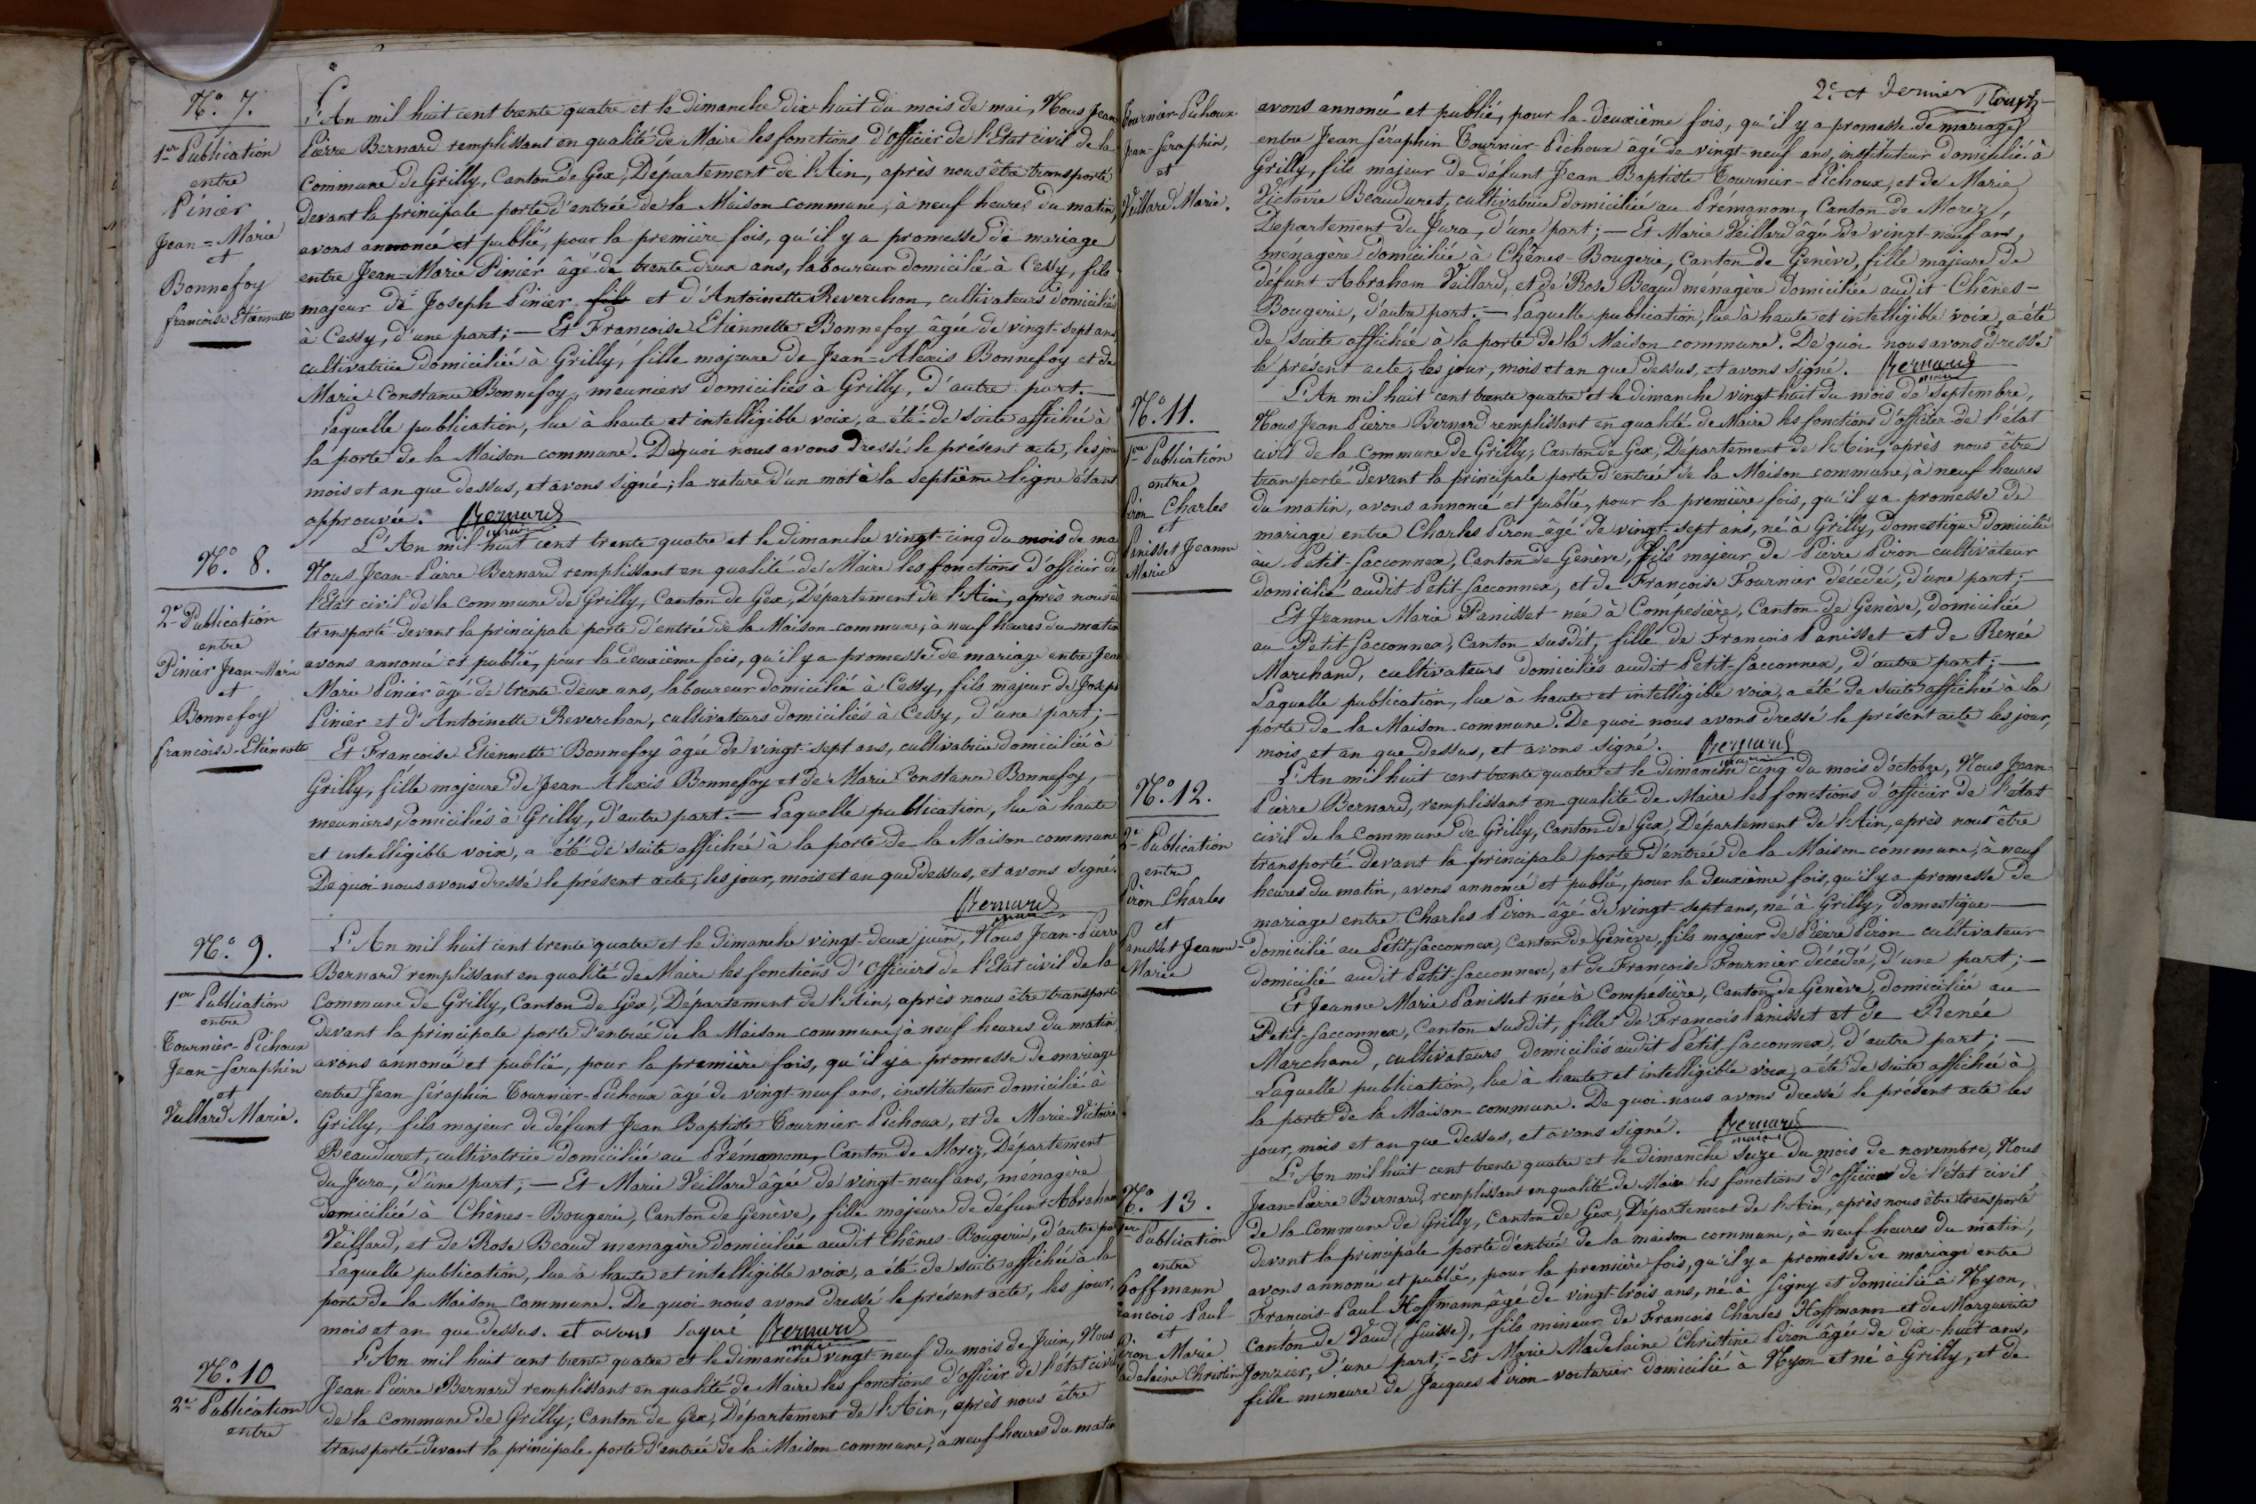 N.° 7.
1ère Publication
entre
Pinier
Jean=Marie
et
Bonnefoy
françoise Etiennette
L'An mil huit cent trente quatre et le dimanche dix huit du mois de mai, Nous Jean
Pierre Bernard remplissant en qualité de Maire les fonctions d'officier de l'Etat civil de la
Commune de Grilly, Canton de Gex, Département de l'Ain, après nous être transporté
devant la principale porte d'entrée de la Maison commune, à neuf heures du matin,
avons annoncé et publié, pour la première fois, qu'il y a promesse de mariage
entre Jean-Marie Pinier âgé de trente deux ans, laboureur domicilié à Cessy, fils
majeur de Joseph Pinier fils et d'Antoinette Reverchon, cultivateurs domiciliés
à Cessy, d'une part; — Et Francoise Etiennette Bonnefoy âgée de vingt-sept ans,
cultivatrice domiciliée à Grilly, fille majeure de Jean=Alexis Bonnefoy et de
Marie Constance Bonnefoy, meuniers domiciliés à Grilly, d'autre part. —
Laquelle publication, lue à haute et intelligible voix, a été de suite affichée à
la porte de la Maison commune. De quoi nous avons dressé le présent acte, les jour
mois et an que dessus, et avons signé; la rature d'un mot à la septième ligne étant
approuvée. Bernard
maire
N.° 8.
2e Publication
entre
Pinier Jean-Marie
et
Bonnefoy
françoise-Etiennette
L'An mil huit cent trente quatre et le dimanche vingt-cinq du mois de mai
Nous Jean-Pierre Bernard remplissant en qualité de Maire les fonctions d'officier de
l'Etat civil de la commune de Grilly, Canton de Gex, Département de l'Ain, après nous
transporté devant la principale porte d'entrée de la Maison commune, à neuf heures du matin
avons annoncé et publié, pour la deuxième fois, qu'il y a promesse de mariage entre Jean
Marie Pinier âgé de trente deux ans, laboureur domicilié à Cessy, fils majeur de Joseph
Pinier et d'Antoinette Reverchon, cultivateurs domiciliés à Cessy, d'une part; —
Et Francoise Etiennette Bonnefoy âgée de vingt-sept ans, cultivatrice domiciliée à
Grilly, fille majeure de Jean Alexis Bonnefoy et de Marie Constance Bonnefoy, —
meuniers, domiciliés à Grilly, d'autre part. — Laquelle publication, lue à haute
et intelligible voix, a été de suite affichée à la porte de la Maison commune
De quoi nous avons dressé le présent acte, les jour, mois et an que dessus, et avons signé.
Bernard
maire
N.° 9.
1ère Publication
entre
Tournier-Pichoux
Jean-Seraphin
et
Veillard Marie.
L'An mil huit cent trente quatre et le dimanche vingt-deux juin, Nous Jean-Pierre
Bernard remplissant en qualité de Maire les fonctions d'Officiers de l'Etat civil de la
Commune de Grilly, Canton de Gex, Département de l'Ain, après nous être transporté
devant la principale porte d'entrée de la Maison commune, à neuf heures du matin
avons annoncé et publié, pour la première fois, qu'il y a promesse de mariage
entre Jean Séraphin Tournier-Pichoux âgé de vingt-neuf ans, instituteur domicilié à
Grilly, fils majeur de défunt Jean Baptiste Tournier-Pichoux, et de Marie-Victoire
Beauduret, cultivatrice domiciliée au Prémanom, Canton de Morez, Département
du Jura, d'une part; — Et Marie Veillard âgée de vingt-neuf ans, ménagère
domiciliée à Chênes-Bougerie, Canton de Genève, fille majeure de défunt Abraham
Veillard, et de Rose Beaud menagère domiciliée audit Chênes-Bougerie, d'autre part
Laquelle publication, lue à haute et intelligible voix, a été de suite affichée à la
porte de la Maison commune. De quoi nous avons dressé le présent acte, les jour,
mois et an que dessus. et avons signé Bernard
maire
N.° 10
2e Publication
entre
L'An mil huit cent trente quatre et le dimanche vingt-neuf du mois de Juin, Nous
Jean Pierre Bernard remplissant en qualité de Maire les fonctions d'officier de l'état civil
de la commune de Grilly, Canton de Gex, Département de l'Ain, après nous être
transporté devant la principale porte d'entrée de la Maison commune, à neuf heures du matin
2e et dernier
Tournier-Pichoux
Jean-Seraphin,
et
Veillard Marie.
avons annoncé et publié, pour la deuxième fois, qu'il y a promesse de mariage
entre Jean Séraphin Tournier Pichoux âgé de vingt-neuf ans, instituteur domicilié à
Grilly, fils majeur de défunt Jean Baptiste Tournier-Pichoux, et de Marie
Victoire Beauduret, cultivatrice domiciliée au Prémanom, Canton de Morez,
Département du Jura, d'une part; — Et Marie Veillard âgée de vingt-neuf ans,
ménagère domiciliée à Chênes-Bougerie, Canton de Genève, fille majeure de
défunt Abraham Veillard, et de Rose Beaud ménagère domiciliée audit Chênes-
Bougerie, d'autre part. — Laquelle publication, lue à haute et intelligible voix, a été
de suite affichée à la porte de la Maison commune. De quoi nous avons dressé
le présent acte, les jour, mois et an que dessus, et avons signé. Bernard
maire
N.° 11.
1ère Publication
entre
Piron Charles
et
Panisset Jeanne
Marie
L'An mil huit cent trente quatre et le dimanche vingt huit du mois de septembre,
Nous Jean Pierre Bernard remplissant en qualité de Maire les fonctions d'officier de l'état
civil de la Commune de Grilly, Canton de Gex, Département de l'Ain, après nous être
transporté devant la principale porte d'entrée de la Maison commune, à neuf heures
du matin, avons annoncé et publié, pour la première fois, qu'il y a promesse de
mariage entre Charles Piron âgé de vingt-sept ans, né à Grilly, domestique domicilié
au Petit-Sacconnex, Canton de Genève, fils majeur de Pierre Piron cultivateur
domicilié audit Petit-Sacconnex, et de Françoise Fournier décédée, d'une part; —
Et Jeanne Marie Panisset née à Compesière, Canton de Genève, domiciliée
au Petit-Sacconnex, Canton susdit, fille de François Panisset et de Renée
Marchand, cultivateurs domiciliés audit Petit-Sacconnex, d'autre part; —
Laquelle publication, lue à haute et intelligible voix, a été de suite affichée à la
porte de la Maison commune. De quoi nous avons dressé le présent acte les jour,
mois et an que dessus, et avons signé. Bernard
maire
N.° 12.
2e Publication
entre
Piron Charles
et
Panisset Jeanne-
Marie
L'An mil huit cent trente quatre et le dimanche cinq du mois d'octobre, Nous Jean
Pierre Bernard, remplissant en qualité de Maire les fonctions d'officier de l'état
civil de la Commune de Grilly, Canton de Gex, Département de l'Ain, après nous être
transporté devant la principale porte d'entrée de la Maison commune, à neuf
heures du matin, avons annoncé et publié, pour la deuxième fois, qu'il y a promesse de
mariage entre Charles Piron âgé de vingt-sept ans, né à Grilly, domestique —
domicilié au Petit-Sacconnex, Canton de Genève, fils majeur de Pierre Piron cultivateur
domicilié audit Petit-Sacconnex, et de Francoise Fournier décédée, d'une part; —
Et Jeanne Marie Panisset née à Compésière, Canton de Genève, domiciliée au —
Petit-Sacconnex, Canton susdit, fille de François Panisset et de Renée
Marchand, cultivateurs domiciliés audit Petit-Sacconnex, d'autre part; —
Laquelle publication, lue à haute et intelligible voix, a été de suite affichée à
la porte de la Maison commune. De quoi nous avons dressé le présent acte les
jour, mois et an que dessus, et avons signé. Bernard
maire
N.° 13.
1ère Publication
entre
Hoffmann
François Paul
et
Piron Marie
Madelaine Christine
L'An mil huit cent trente quatre et le dimanche seize du mois de novembre, Nous
Jean-Pierre Bernard, remplissant en qualité de Maire les fonctions d'officier de l'état civil
de la Commune de Grilly, Canton de Gex, Département de l'Ain, après nous être transporté
devant la principale porte d'entrée de la maison commune, à neuf heures du matin,
avons annoncé et publié, pour la première fois, qu'il y a promesse de mariage entre
François-Paul Hoffmann âgé de vingt-trois ans, né à Signy et domicilié à Nyon,
Canton de Vaud (Suisse), fils mineur de François Charles Hoffmann et de Marguerite
Jonzier, d'une part; - Et Marie Madelaine Christine Piron âgée de dix-huit ans,
fille mineure de Jacques Piron voiturier domicilié à Nyon et né à Grilly, et de